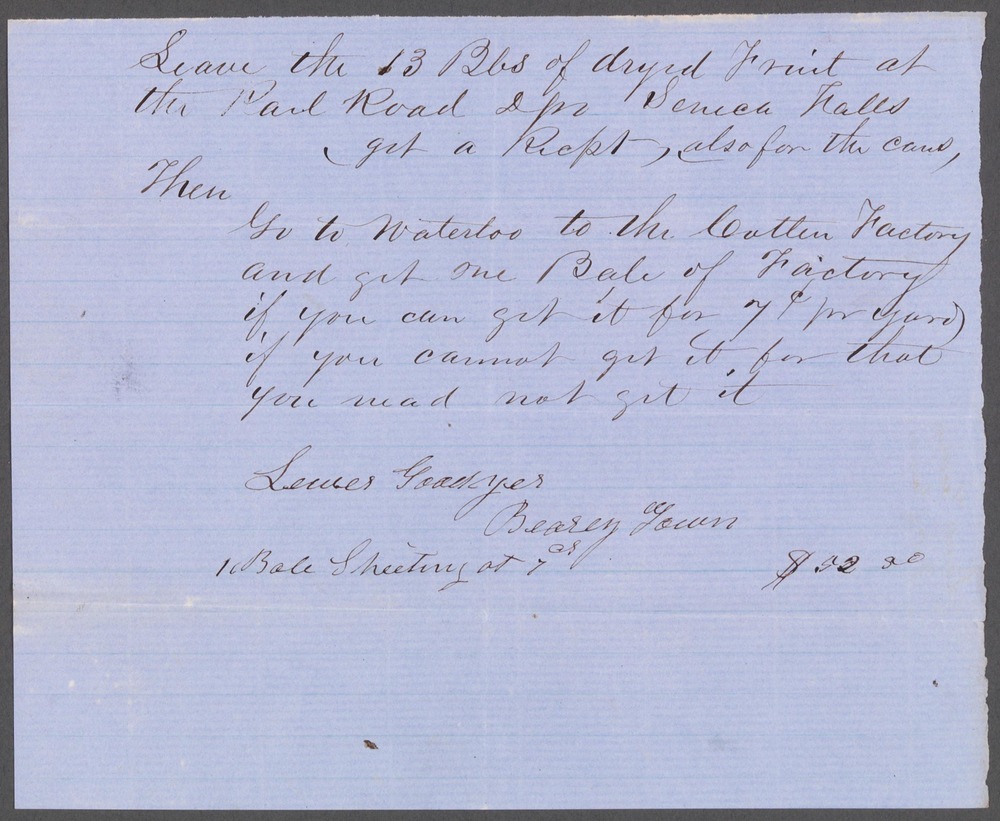 Leave the 13 Bbs of dryed Fruit at
the Rail Road Dpo Seneca Falls
get a Recpt, also for the cans,
Then
Go to Waterloo to the Cotten Factory
and get one Bale of Factory
if you can get it for 7 c pr yard
if you cannot get it for that
you nead not get it
Lewes Goodyer
Bearey Town
1 Bale Sheeting at 7 cs $